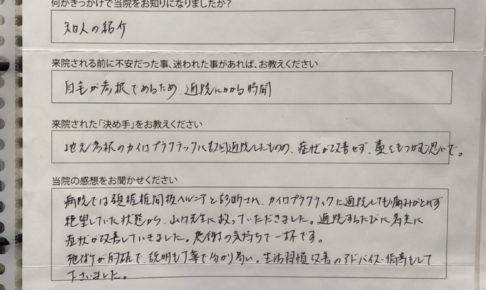 何がきっかけで当院をお知りになりましたか?
知人の紹介
来院される前に不安だった事、迷われた事があれば、お教えください
自宅が赤坂であるため、通院にかかる時間
来院された「決め手」をお教えください
地元赤坂のカイロプラクティックにも数回通院したものの、症状が改善せず、藁をもつかむ思いで。
当院の感想をお聞かせください
病院では頚椎椎間板ヘルニアと診断され、カイロプラクティックに通院しても痛みがとれず
絶望していた状態から、山口先生に救っていただきました。通院するたびに着実に
症状が改善していきました。感謝の気持ちで一杯です。
施術が的確で、説明も丁寧で分かり易い。生活習慣改善のアドバイス・指導もして
下さいました。